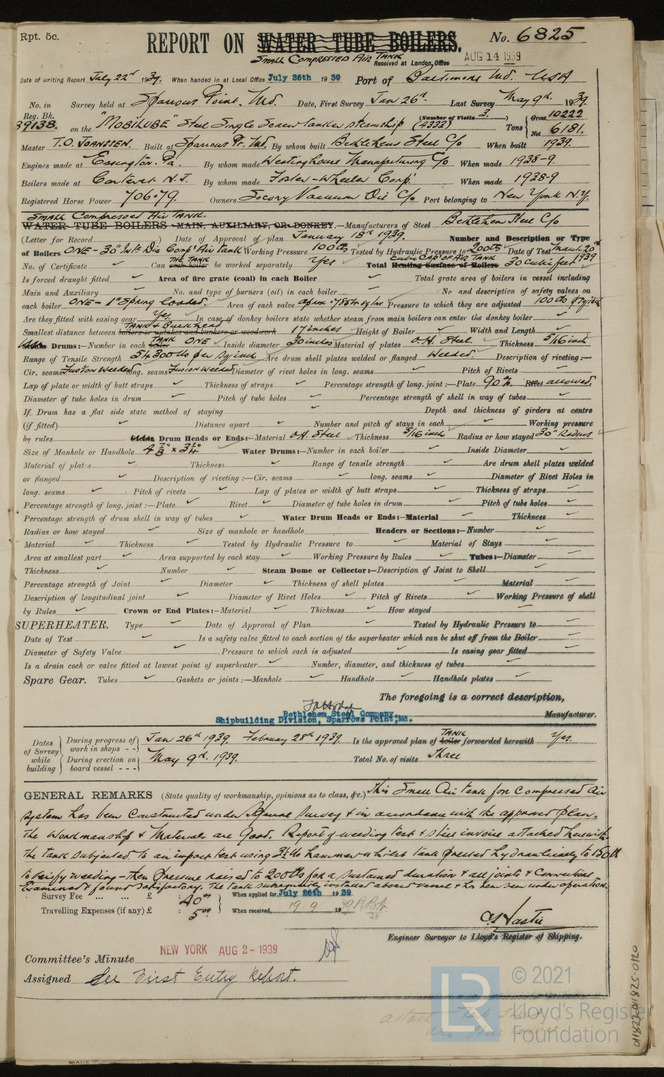 Rpt. 5c.
REPORT ON WATER TUBE BOILERS. No. 6825
SMALL COMPRESSED AIR TANK
Received at London Office AUG 14 1939
Date of writing Report July 22nd 1939. When handed in at Local Office July 26th 1939 Port of Baltimore Md. USA
No. in Survey held at Sparrows Point, Md. Date, First Survey Jan 26th. Last Survey May 9th. 1939.
Reg. Bk. (Number of Visits 3.) Gross 10222
39138 on the "MOBILUBE" Steel Single Screw tanker steamship (4333) Tons Net 6181.
Master T.O. JOANSSEN. Built at Sparrows Pt. Md By whom built Bethlehem Steel Co When built 1939.
Engines made at Essington. Pa. By whom made Westinghouse Manufacturing Co When made 1938-9.
Boilers made at Carteret N.J. By whom made Foster-Wheeler Corp. When made 1938-9
Registered Horse Power 706.79. Owners Socony Vacuum Oil Co Port belonging to New York N.Y.
SMALL COMPRESSED AIR TANK.
WATER TUBE BOILERS—MAIN, AUXILIARY, OR DONKEY.—Manufacturers of Steel Bethlehem Steel Co
(Letter for Record ) Date of Approval of plan January 18th 1939. Number and Description or Type
of Boilers ONE - 30" Dia Comp Air Tank Working Pressure 100 lbs Tested by Hydraulic Pressure to 200 lbs Date of Test 1939
No. of Certificate Can THE TANK each boiler be worked separately Yes Total Heating Surface of Boilers 30 cubic feet
Is forced draught fitted Area of fire grate (coal) in each Boiler Total grate area of boilers in vessel including
Main and Auxiliary No. and type of burners (oil) in each boiler No. and description of safety valves on
each boiler ONE - 1" Spring Loaded. Area of each valve Pressure to which they are adjusted 100 lbs
Are they fitted with easing gear Yes. In case of donkey boilers state whether steam from main boilers can enter the donkey boiler
Smallest distance between TANK & Bulkhead 17 inches Height of Boiler Width and Length
Drums:—Number in each TANK ONE Inside diameter 30 inches Material of plates O.H. Steel. Thickness 5/16 inch
Range of Tensile Strength 54300 lbs per sq inch Are drum shell plates welded or flanged Welded. Description of riveting:—
Cir. seams Fusion Welded long. seams Fusion Welded Diameter of rivet holes in long. seams Pitch of Rivets
Lap of plate or width of butt straps Thickness of straps Percentage strength of long. joint:—Plate 90% Rivet allowed
Diameter of tube holes in drum Pitch of tube holes Percentage strength of shell in way of tubes
If Drum has a flat side state method of staying Depth and thickness of girders at centre
(if fitted) Distance apart Number and pitch of stays in each Working pressure
by rules Drum Heads or Ends:—Material O.H. Steel Thickness 5/16 inch Radius or how stayed 30" Radius
Size of Manhole or Handhole Water Drums:—Number in each boiler Inside Diameter
Material of plates Thickness Range of tensile strength Are drum shell plates welded
or flanged Description of riveting:—Cir. seams long. seams Diameter of Rivet Holes in
long. seams Pitch of rivets Lap of plates or width of butt straps Thickness of straps
Percentage strength of long. joint:—Plate Rivet Diameter of tube holes in drum Pitch of tube holes
Percentage strength of drum shell in way of tubes Water Drum Heads or Ends:—Material Thickness
Radius or how stayed Size of manhole or handhole Headers or Sections:—Number
Material Thickness Tested by Hydraulic Pressure to Material of Stays
Area at smallest part Area supported by each stay Working Pressure by Rules Tubes:—Diameter
Thickness Number Steam Dome or Collector:—Description of Joint to Shell
Percentage strength of Joint Diameter Thickness of shell plates Material
Description of longitudinal joint Diameter of Rivet Holes Pitch of Rivets Working Pressure of shell
by Rules Crown or End Plates:—Material Thickness How stayed
SUPERHEATER. Type Date of Approval of Plan Tested by Hydraulic Pressure to
Date of Test Is a safety valve fitted to each section of the superheater which can be shut off from the Boiler
Diameter of Safety Valve Pressure to which each is adjusted Is easing gear fitted
Is a drain cock or valve fitted at lowest point of superheater Number, diameter, and thickness of tubes
Spare Gear. Tubes Gaskets or joints:—Manhole Handhole Handhole plates
The foregoing is a correct description,
Bethlehem Steel Company
Shipbuilding Division, Sparrows Point, Md. Manufacturer.
Dates of Survey while building
During progress of work in shops - - Jan 26th 1939. February 28th 1939. Is the approved plan of TANK boiler forwarded herewith Yes.
During erection on board vessel - - - May 9th. 1939. Total No. of visits Three
GENERAL REMARKS (State quality of workmanship, opinions as to class, &c.) This Small Air Tank for Compressed Air
system has been constructed under Special Survey & in accordance with the approved plan.
The Workmanship & Material are Good. Report of welding test & steel invoice attached herewith.
The tank subjected to an impact test using 3½ lb hammer whilst tank pressed hydraulically to 150 lb
to verify welding - then pressure raised to 200 lbs for a sustained duration & all joints & connections
Examined & found satisfactory. The tank subsequently installed aboard vessel & has been seen under operation.
Survey Fee ... ... £ 40.00 When applied for, July 26th 1939
Travelling Expenses (if any) £ 5.00 When received, 19 9 19
Engineer Surveyor to Lloyd's Register of Shipping.
Committee's Minute NEW YORK AUG 2 - 1939
Assigned See First Entry Report.
© 2021
LR Lloyd's Register
Foundation
011827-011825-0120